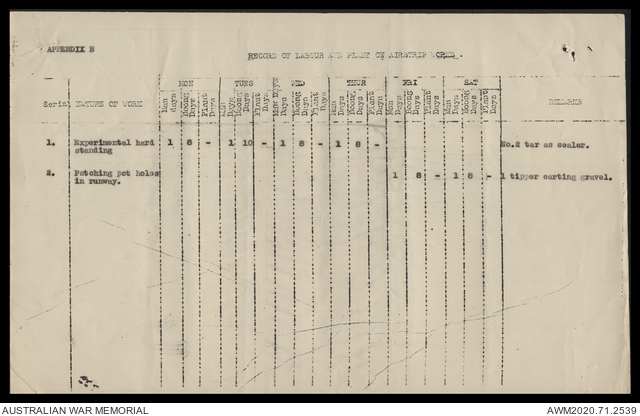 APPENDIX B
RECORD OF LABOUR AND PLANT ON AIRSTRIP WORKS.
MON TUES WED THUR FRI SAT
Serial NATURE OF WORK Man days Boong Days Plant Days Man Days Boong Days Plant Days Man Days Boong Days Plant Days Man Days Boong Days Plant Days Man Days Boong Days Plant Days Man Days Boong Days Plant Days REMARKS
1. Experimental hard 1 8 - 1 10 - 1 8 - 1 8 - No.2 tar as sealer.
standing
2. Patching pot holes 1 8 - 1 8 - 1 tipper carting gravel.
in runway.
AUSTRALIAN WAR MEMORIAL
AWM2020.71.2539